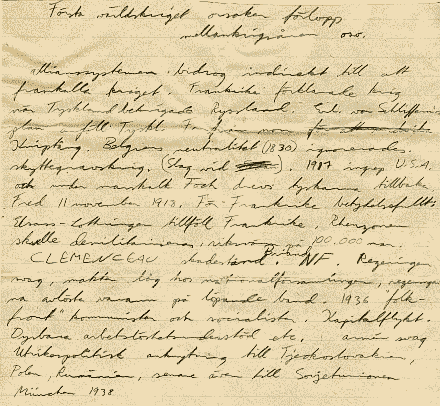 Första världskriget orsaker förlopp
mellankrigsåren oro.
Allianssystemen bidrog indirekt till att
framkalla kriget. Frankrike förklarade krig
när Tyskland Ryssland. Enl. von Schlieffen
plan anföll Tyskl.
Belgiens neutralitet (1830) ignorerades.
skyttegravskrig. (Slag vid ). 1917 ingrep U.S.A.
och under marskalk Foch drevs tyskarna tillbaka
Fred 11 november 1918.
Elsass-Lothringen tillföll Frankrike. Rhenzonen
skulle demilitariseras, på 100.000 man.
CLEMENCEAU skadestånd Briand NF. Regeringen
svag, makten låg hos nationalförsamlingen, regeringar
na avlöste varann på löpande band. 1936 folk-
front kommunister och socialister. Kapitalflykt.
Dyrbara etc. armén svag
Utrikespolitisk anknytning till Tjeckoslovakien,
Polen, Rumänien, senare även till Sovjetunionen
München 1938